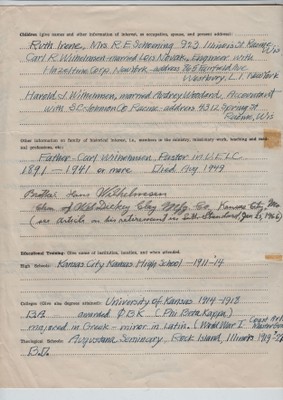 Children (give names and other information of interest, as occupation, spouse, and present address):
Ruth Irene, Mrs. R.E. Scheming 923 Illinois St Racine, Wis
Carl R Wilhelmsen married Lois Novak, Engineer with
Hazeltine Corp. New York - address 765 Fairfield Ave
Westbury, L.I. New York
Harold J. Wilhelmsen, married Audrey Woodard, Accountant
with S.C. Johnson Co Racine - address 4312 Spring St
Racine, Wis
Other information on family of historical interest, i.e., members in the ministry, missionary work, teaching and medical professions, etc.:
Father - Carl Wilhelmsen, Pastor in U.E.L.C.
1891 - 1941 or more Died Aug 1949
Brother: Hans Wilhelmsen
of Dickey Clay Mfg. Co, Kansas City, Mo
(see article on his retirement in Standard Jan 23, 1966)
Educational Training: (Give name of institution, location, and when attended)
High School: Kansas City Kansas High School - 1911-14
Colleges (Give also degrees attained): University of Kansas 1914-1918
BA awarded ΦBK (Phi Beta Kappa)
majored in Greek - minor in Latin. (World War I Coast Art.
Theological Schools: Augustana Seminary, Rock Island, Illinois 1919-
B.D.